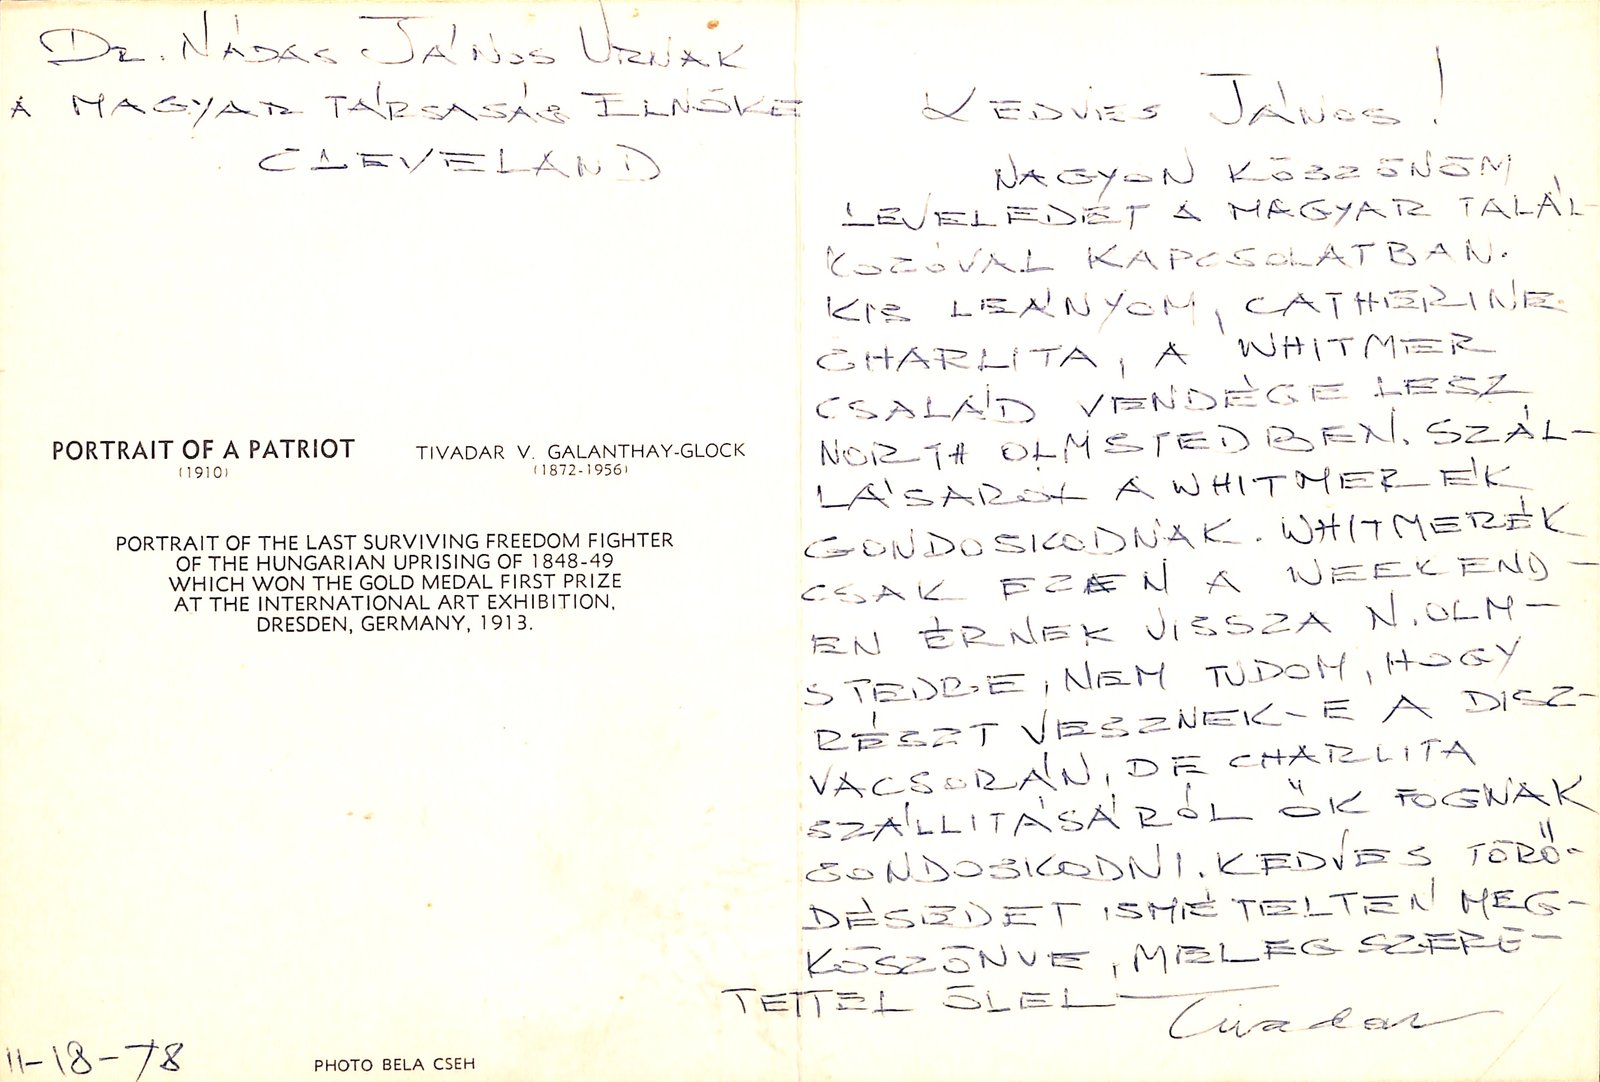 DR. NÁDAS JÁNOS URNAK
A MAGYAR TÁRSASÁG ELNÖKE
CLEVELAND
PORTRAIT OF A PATRIOT
(1910)
TIVADAR V. GALANTHAY-GLOCK
(1872-1956)
PORTRAIT OF THE LAST SURVIVING FREEDOM FIGHTER
OF THE HUNGARIAN UPRISING OF 1848-49
WHICH WON THE GOLD MEDAL FIRST PRIZE
AT THE INTERNATIONAL ART EXHIBITION,
DRESDEN, GERMANY, 1913.
11-18-78
PHOTO BELA CSEH
KEDVES JÁNOS!
NAGYON KÖSZÖNÖM
LEVELEDET A MAGYAR TALÁL-
KOZÓVAL KAPCSOLATBAN.
KIS LEÁNYOM, CATHERINE
CHARLITA, A WHITMER
CSALÁD VENDÉGE LESZ
NORTH OLMSTEDBEN. SZÁL-
LÁSÁRÓL A WHITMER ÉK
GONDOSKODNAK. WHITMERÉK
CSAK EZEN A WEEKEND-
EN ÉRNEK VISSZA N. OLM-
STEDBE, NEM TUDOM, HOGY
RÉSZT VESZNEK-E A DISZ-
VACSORÁN, DE CHARLITA
SZÁLLITÁSÁRÓL ŐK FOGNAK
GONDOSKODNI. KEDVES TÖRŐ-
DÉSEDET ISMÉTELTEN MEG-
KÖSZÖNVE, MELEG SZERE-
TETTEL ÖLEL
Tivadar